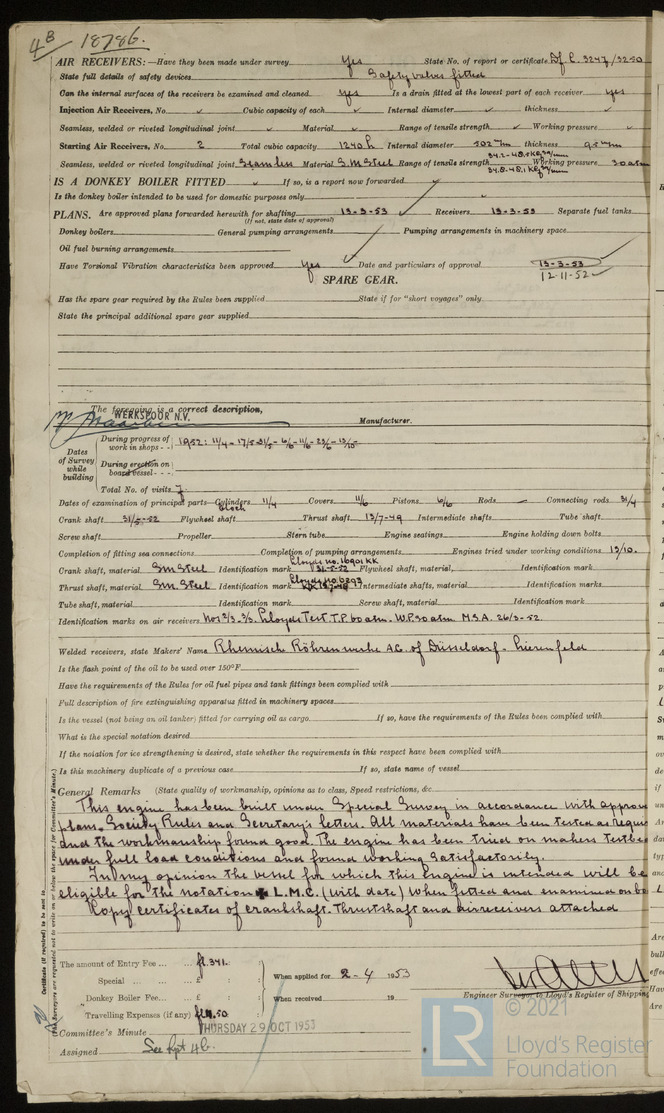 4B 18786.
AIR RECEIVERS:—Have they been made under survey Yes State No. of report or certificate Df. C. 3247/3250
State full details of safety devices Safety valves fitted
Can the internal surfaces of the receivers be examined and cleaned Yes Is a drain fitted at the lowest part of each receiver yes
Injection Air Receivers, No. Cubic capacity of each Internal diameter thickness
Seamless, welded or riveted longitudinal joint Material Range of tensile strength Working pressure
Starting Air Receivers, No. 2 Total cubic capacity 1240 Internal diameter 502 mm thickness
Seamless, welded or riveted longitudinal joint Seamless Material S.M Steel Range of tensile strength 34.2-48.1 Kg/mm 34.8-48.1 Kg/mm Working pressure 30 atm
IS A DONKEY BOILER FITTED If so, is a report now forwarded
Is the donkey boiler intended to be used for domestic purposes only
PLANS. Are approved plans forwarded herewith for shafting 13-3-53 Receivers 13-3-53 Separate fuel tanks
(If not, state date of approval)
Donkey boilers General pumping arrangements Pumping arrangements in machinery space
Oil fuel burning arrangements
Have Torsional Vibration characteristics been approved Yes Date and particulars of approval 13-3-53
12-11-52
SPARE GEAR.
Has the spare gear required by the Rules been supplied State if for "short voyages" only
State the principal additional spare gear supplied
The foregoing is a correct description,
WERKSPOOR N.V.
Manufacturer.
Dates of Survey while building
During progress of work in shops - - 1952: 11/4 - 17/5-31/5 - 6/6 - 11/6 - 23/6 - 13/10-
During erection on board vessel - - -
Total No. of visits 7
Dates of examination of principal parts—Cylinders Block 11/4 Covers 11/6 Pistons 6/6 Rods — Connecting rods 31/4
Crank shaft 31/5-52 Flywheel shaft Thrust shaft 13/7-49 Intermediate shafts Tube shaft
Screw shaft Propeller Stern tube Engine seatings Engine holding down bolts
Completion of fitting sea connections Completion of pumping arrangements Engines tried under working conditions 13/10.
Crank shaft, material S.M Steel Identification mark Lloyds no. 16901 KK 31-5-52 Flywheel shaft, material, Identification mark
Thrust shaft, material S.M. Steel Identification mark Lloyds no 6893 13-7-49 Intermediate shafts, material Identification marks
Tube shaft, material Identification mark Screw shaft, material Identification mark
Identification marks on air receivers Lloyds Test T.P. 60 atm. W.P. 30 atm M.S.A. 26/3-52.
Welded receivers, state Makers' Name Rheinische Röhrenwerke A.G. of Düsseldorf - Lierenfeld
Is the flash point of the oil to be used over 150°F
Have the requirements of the Rules for oil fuel pipes and tank fittings been complied with
Full description of fire extinguishing apparatus fitted in machinery spaces
Is the vessel (not being an oil tanker) fitted for carrying oil as cargo If so, have the requirements of the Rules been complied with
What is the special notation desired
If the notation for ice strengthening is desired, state whether the requirements in this respect have been complied with
Is this machinery duplicate of a previous case If so, state name of vessel
General Remarks (State quality of workmanship, opinions as to class, Speed restrictions, &c.
This engine has been built under Special Survey in accordance with approve
plans, Society Rules and Secretary's letters. All materials have been tested as requi
and the workmanship found good. The engine has been tried on makers testbe
under full load conditions and found working satisfactorily.
In my opinion the vessel for which this engine is intended will be
eligible for the notation ✠ L.M.C. (with date) when fitted and examined on bo
Copy certificates of crankshaft. Thrustshaft and airreceivers attached
The amount of Entry Fee ... fl. 341.
Special ... £
Donkey Boiler Fee... £
Travelling Expenses (if any)
When applied for 2-4 1953
When received 19
Engineer Surveyor to Lloyd's Register of Shipping
Committee's Minute THURSDAY 29 OCT 1953
Assigned See Rpt 4b.
Certificate (if required) to be sent to
(The Surveyors are requested not to write on or below the space for Committee's Minute.)
© 2021
LR
Lloyd's Register
Foundation